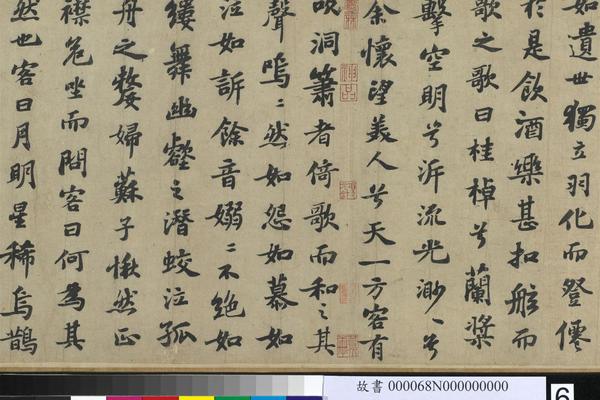 如遺世獨立羽化而登僊
於是飲酒樂甚扣舷而
歌之歌曰桂棹兮蘭槳
擊空明兮泝流光渺〻兮
余懷望美人兮天一方客有
吹洞簫者倚歌而和之其
聲嗚〻然如怨如慕如
泣如訴餘音嫋〻不絕如
縷舞幽壑之潛蛟泣孤
舟之嫠婦蘇子愀然正
襟危坐而問客曰何為其
然也客曰月明星稀烏鵲
故書 000068N000000000
6